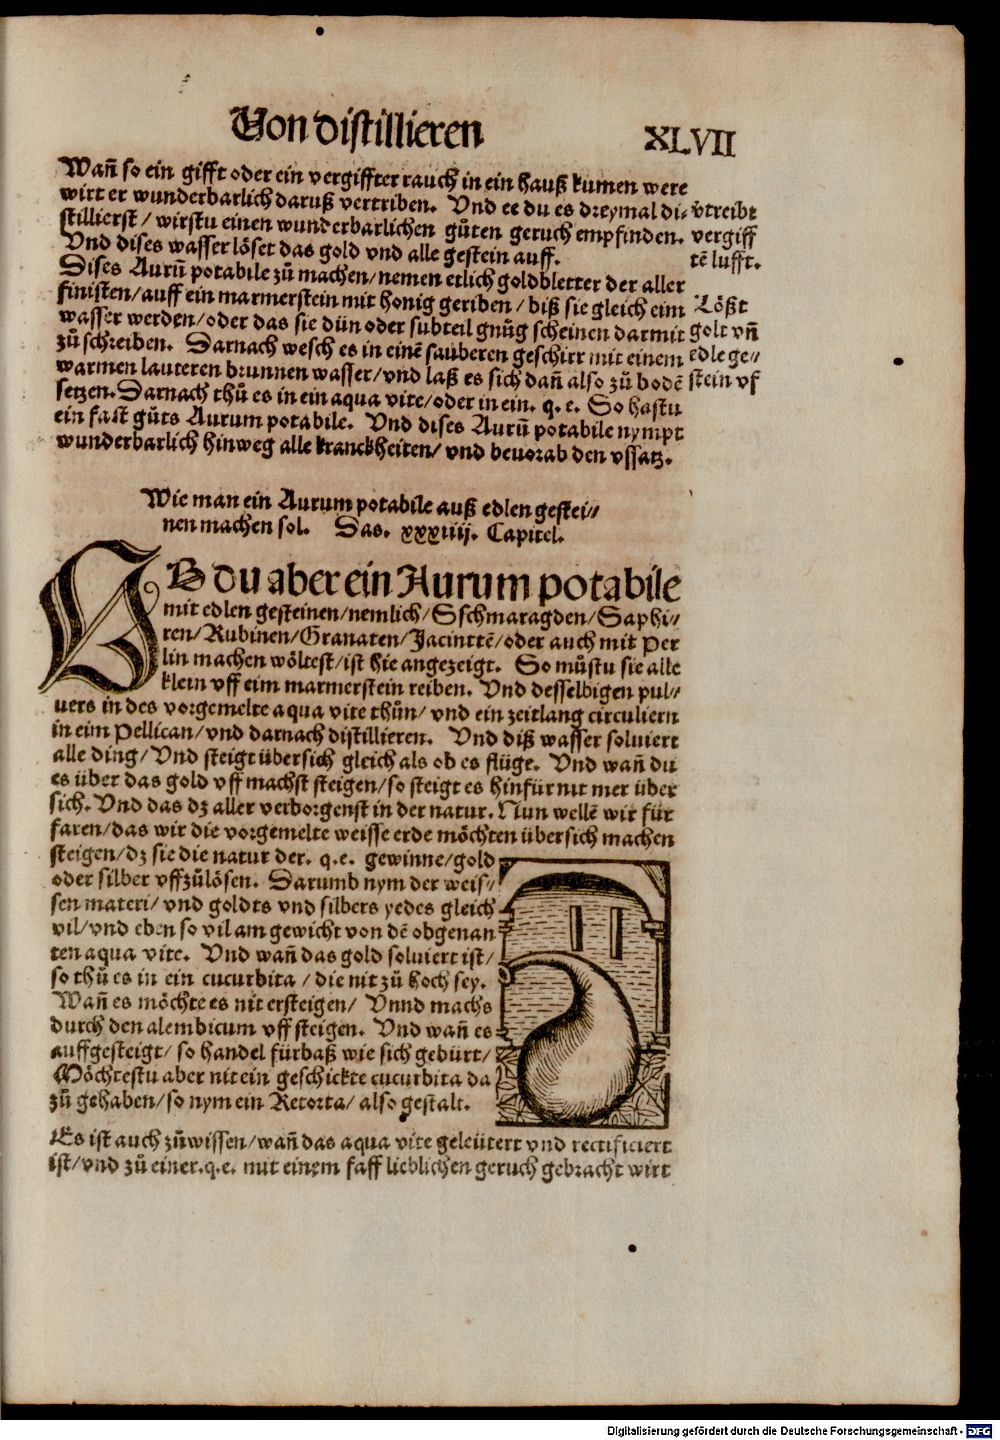 Von distillieren
XLVII
Wañ so ein gifft oder ein vergiffter rauch in ein hauß kumen were
wirt er wunderbarlich daruß vertriben. Vnd ee du es dreymal di⸗
stillierst / wirstu einen wunderbarlichen gůten geruch empfinden.
Vnd dises wasser löset das gold vnd alle gestein auff.
vtreibt
vergiff
tē lufft.
Dises Aurū potabile zů machen / nemen etlich goldbletter der aller
finisten / auff ein marmerstein mit honig geriben / biß sie gleich eim
wasser werden / oder das sie dün oder subteil gnůg scheinen darmit
zů schreiben. Darnach wesch es in einē sauberen geschirr mit einem
warmen lauteren brunnen wasser / vnd laß es sich dañ also zů bodē
setzen. Darnach thů es in ein aqua vite / oder in ein. q. e. So hastu
ein fast gůts Aurum potabile. Vnd dises Aurū potabile nympt
wunderbarlich hinweg alle kranckheiten / vnd beuorab den vssatz.
Lößt
golt vñ
edle ge⸗
stein vf
Wie man ein Aurum potabile auß edlen gestei⸗
nen machen sol. Das. xxxiiij. Capitel.
OB du aber ein Aurum potabile
mit edlen gesteinen / nemlich / Sschmaragden / Saphi⸗
ren / Rubinen / Granaten / Jacinttē / oder auch mit Per
lin machen wöltest / ist hie angezeigt. So můstu sie alle
klein vff eim marmerstein reiben. Vnd desselbigen pul⸗
uers in des vorgemelte aqua vite thůn / vnd ein zeitlang circuliern
in eim Pellican / vnd darnach distillieren. Vnd diß wasser soluiert
alle ding / Vnd steigt übersich gleich als ob es flüge. Vnd wañ du
es über das gold vff machst steigen / so steigt es hinfür nit mer über
sich. Vnd das dz aller verborgenst in der natur. Nun wellē wir für
faren / das wir die vorgemelte weisse erde möchten übersich machen
steigen / dz sie die natur der. q.e. gewinne / gold
oder silber vffzůlösen. Darumb nym der weis⸗
sen materi / vnd goldts vnd silbers yedes gleich
vil / vnd eben so vil am gewicht von dē obgenan
ten aqua vite. Vnd wañ das gold soluiert ist /
so thů es in ein cucurbita / die nit zů hoch sey.
Wañ es möchte es nit ersteigen / Vnnd machs
durch den alembicum vff steigen. Vnd wañ es
auffgesteigt / so handel fürbaß wie sich gebürt /
Möchtestu aber nit ein geschickte cucurbita da
zů gehaben / so nym ein Retorta / also gestalt.
Es ist auch zůwissen / wañ das aqua vite geleütert vnd rectificiert
ist / vnd zů einer.q.e. mit einem fast lieblichen geruch gebracht wirt
Digitalisierung gefördert durch die Deutsche Forschungsgemeinschaft - DFG